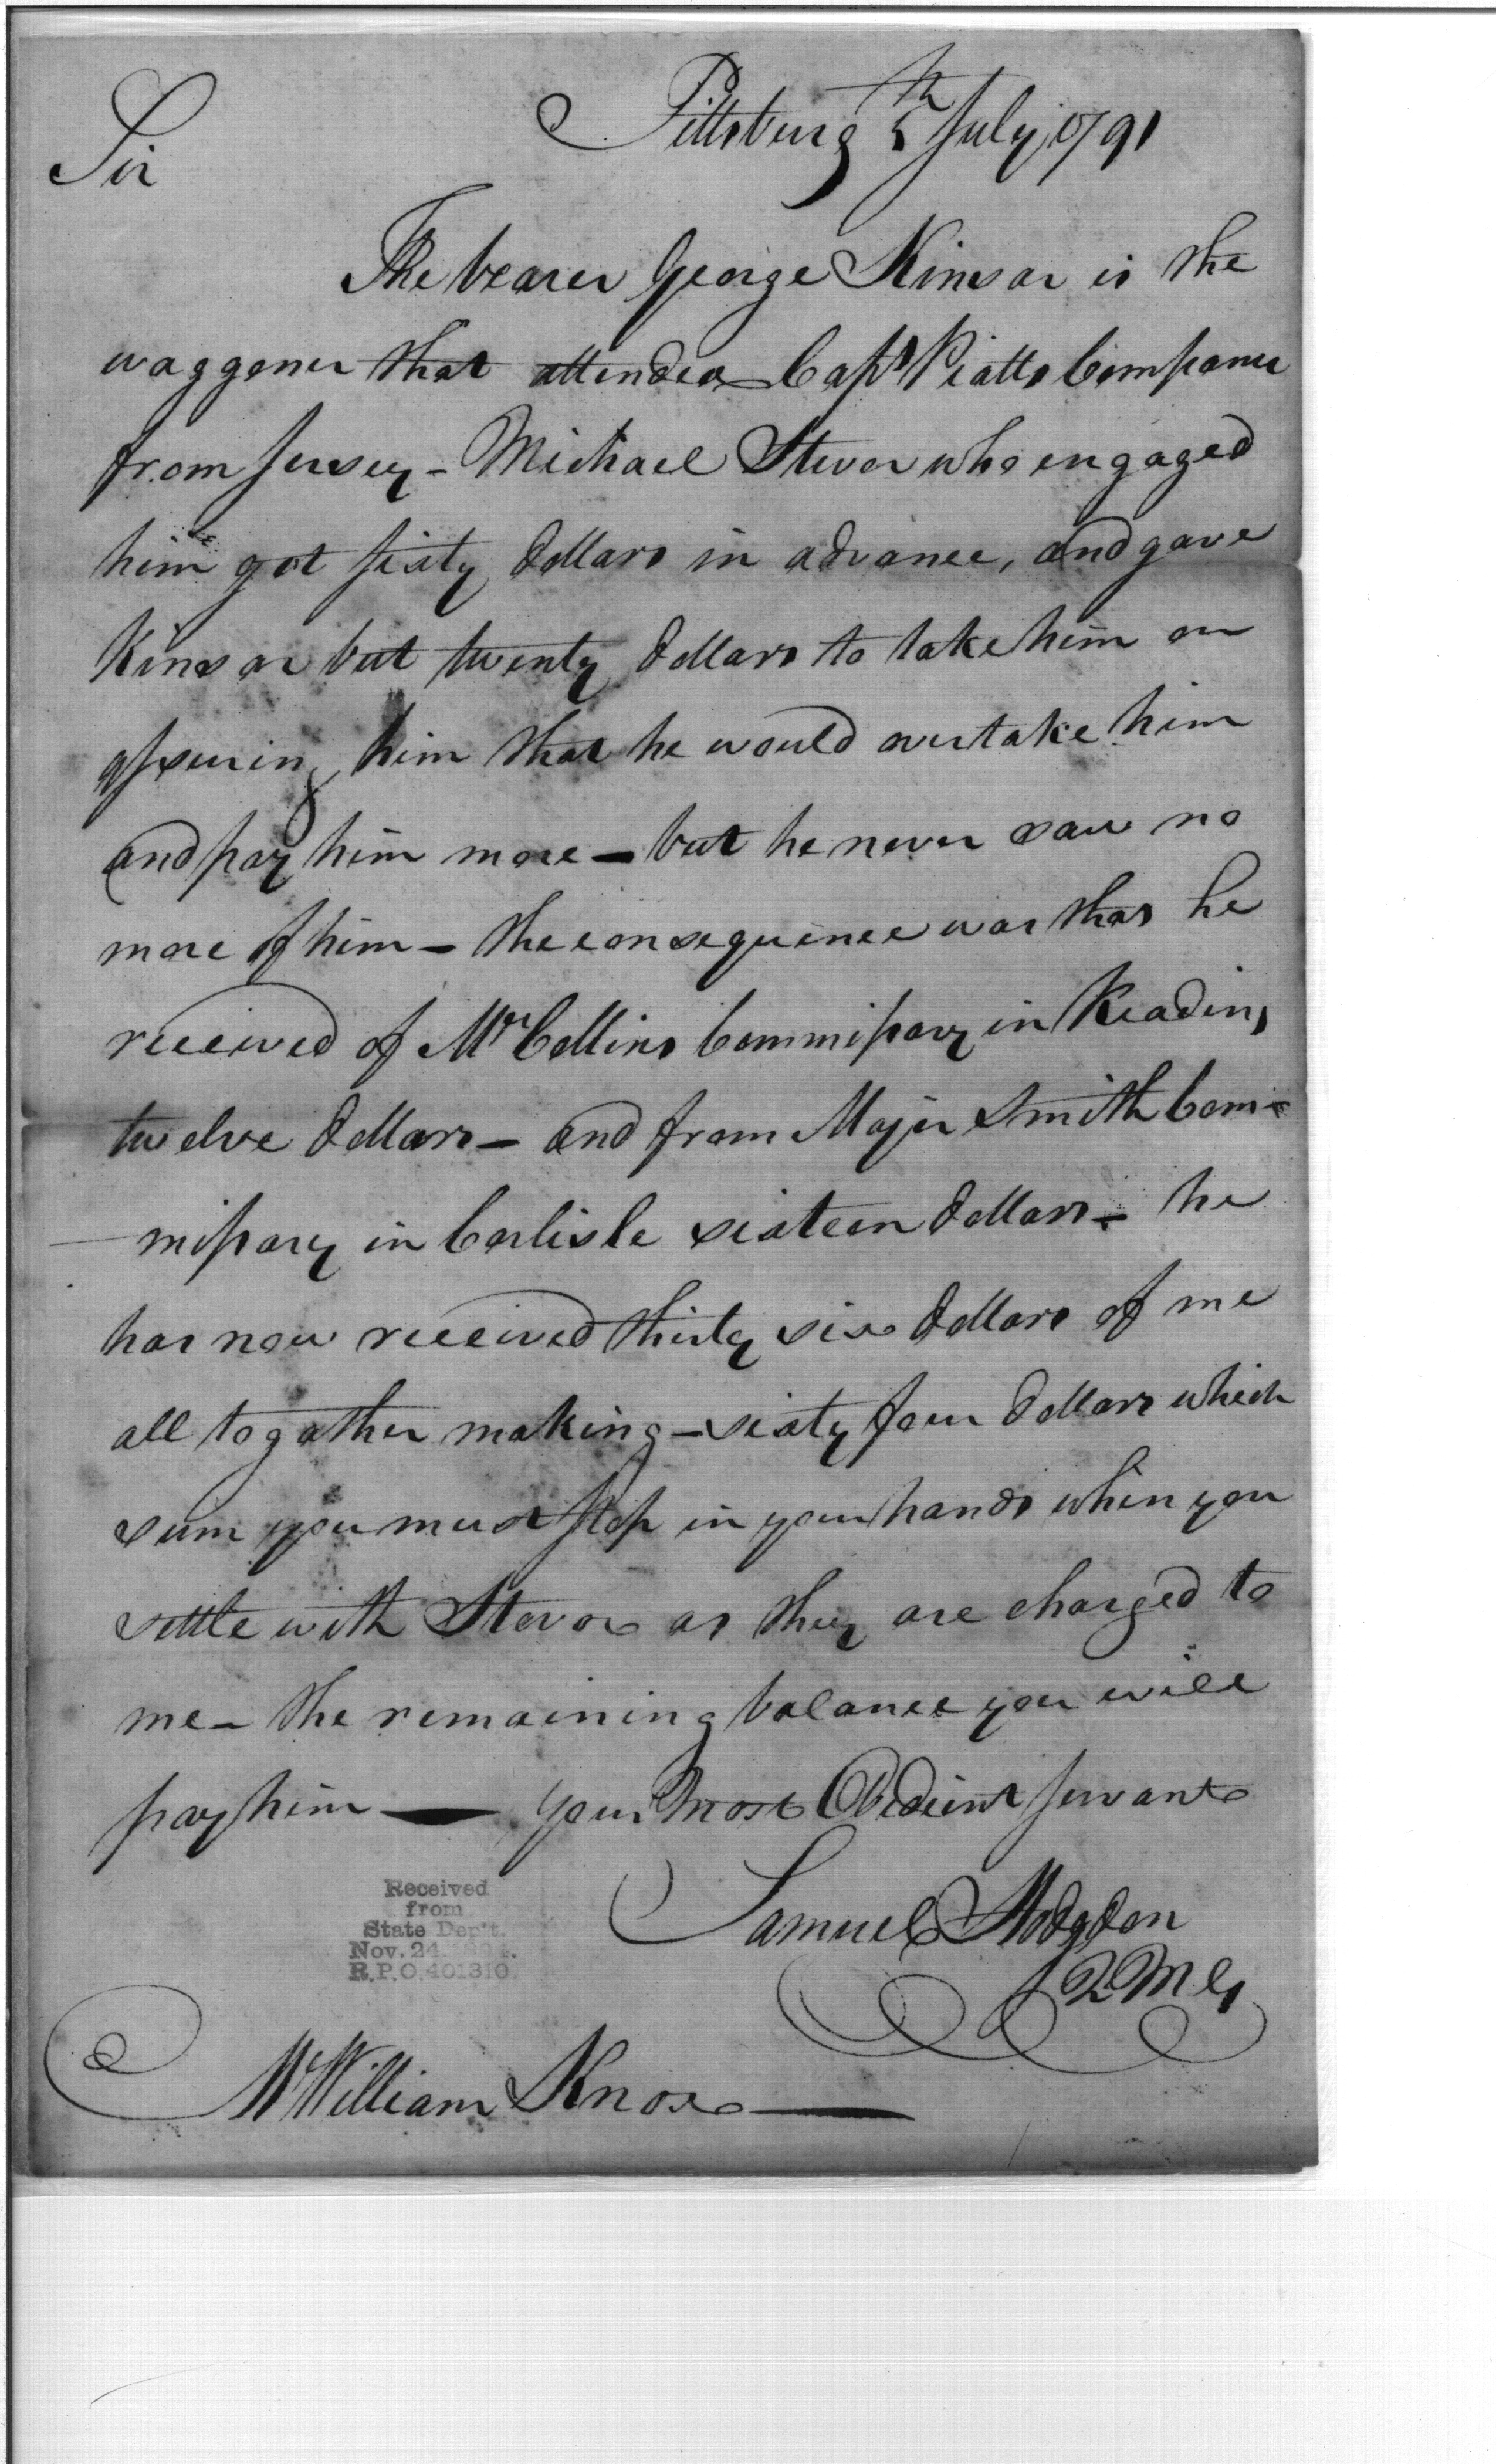 Pittsburg 5th July 1791
Sir
The bearer George Kinsar is the
waggoner that attended Capt Piatts Company
from Jersey - Michael Stever who engaged
him got sixty dollars in advance, and gave
Kinsar but twenty dollars to take him on
assuring him that he would overtake him
and pay him more - but he never saw no
more of him - the consequence was that he
received of Mr Collins Commissary in Reading
twelve dollars - and from Major Smith Com-
missary in Carlisle sixteen dollars - he
has now received thirty six dollars of me
all togather making - sixty four dollars which
sum you must stop in your hands when you
settle with Stever as they are charged to
me - the remaining balance you will
pay him — your most Obedient servant
Samuel Hodgdon
QMG
Received
from
State Dep't.
Nov. 24.
R.P.O. 401310.
Mr William Knox —